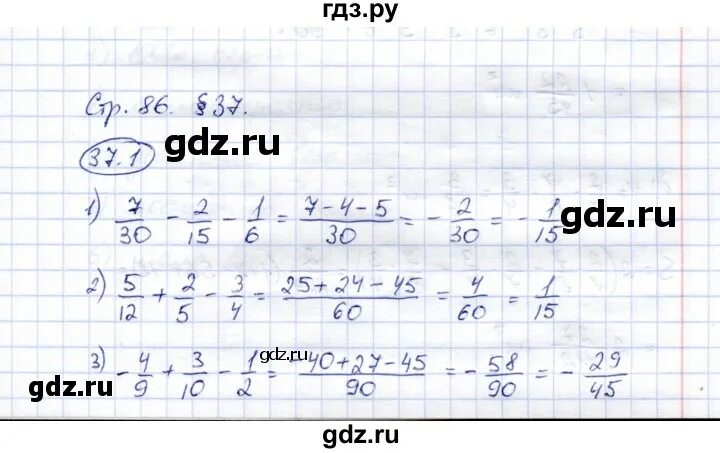 гдз.ру
Стр. 86. § 37.
37.1 gdz.ru
1) 7/30 - 2/15 - 1/6 = (7-4-5)/30 = - 2/30 = - 1/15
gdz.ru
2) 5/12 + 2/5 - 3/4 = (25+24-45)/60 = 4/60 = 1/15
gdz.ru
3) - 4/9 + 3/10 - 1/2 = (-40+27-45)/90 = - 58/90 = - 29/45
gdz.ru gdz.ru
gdz.ru